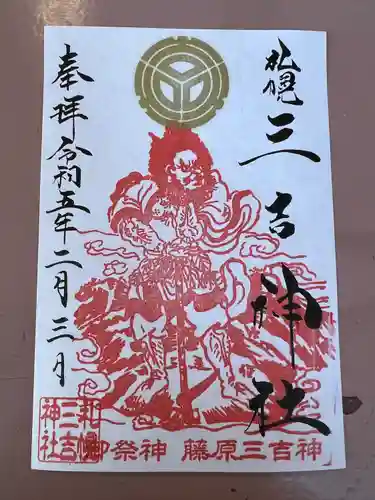 札幌三吉神社
奉拝令和五年二月三月
札幌三吉神社
御祭神 藤原三吉神